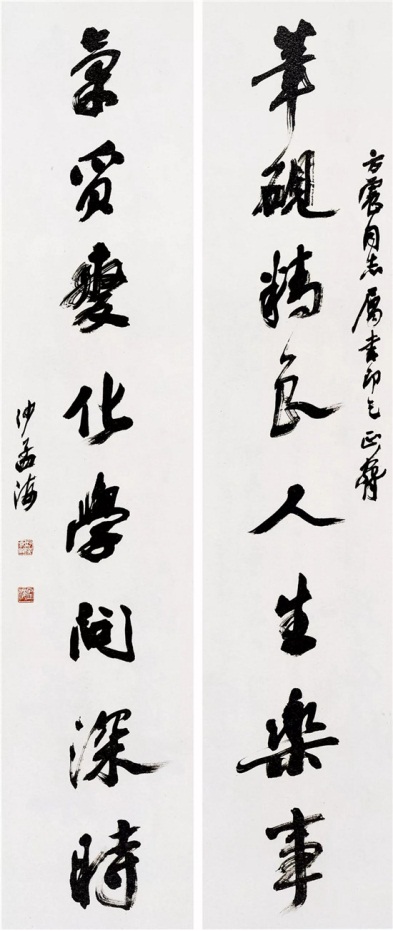 方震同志属书即乞正腕
筆硯精良人生樂事
氣質變化學問深時
沙孟海